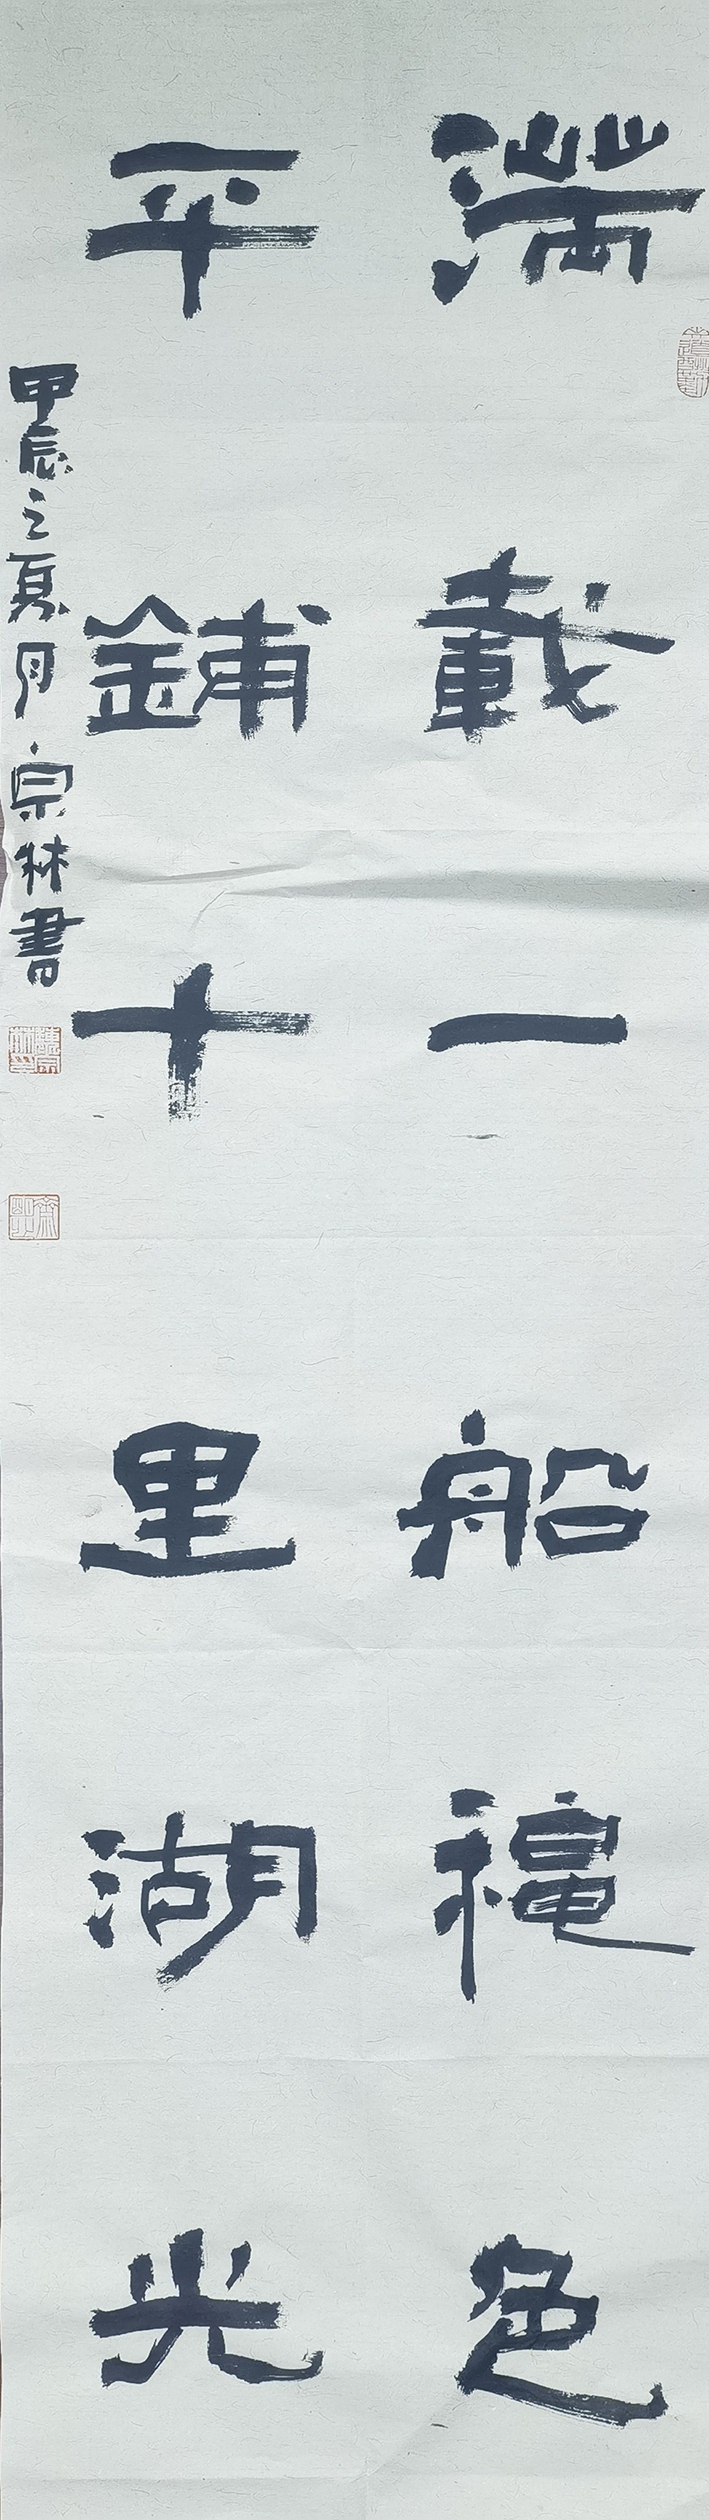 滿載一船穐色
平鋪十里湖光
甲辰之夏月宗林書